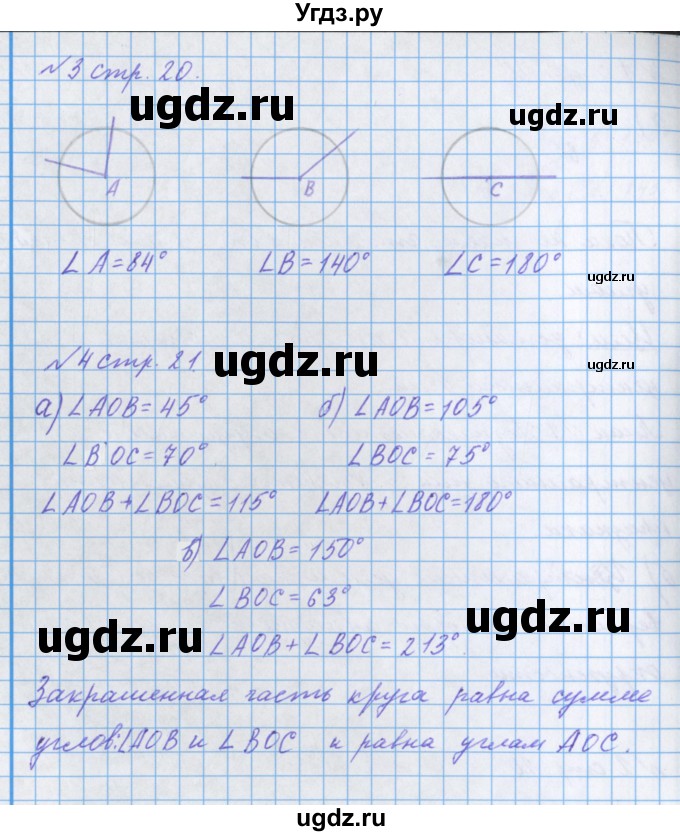 Угдз.ру
№3 стр. 20.
ugdz.ru ugdz.ru
A B C
∠A=84° ∠B=140° ∠C=180°
ugdz.ru
№4 стр. 21.
ugdz.ru ugdz.ru
а) ∠AOB=45° б) ∠AOB=105°
∠BOC=70° ∠BOC=75°
∠AOB+∠BOC=115° ∠AOB+∠BOC=180°
в) ∠AOB=150°
∠BOC=63°
ugdz.ru ugdz.ru
∠AOB+∠BOC=213°.
Закрашенная часть круга равна сумме
углов:∠AOB и ∠BOC и равна углам AOC.
ugdz.ru